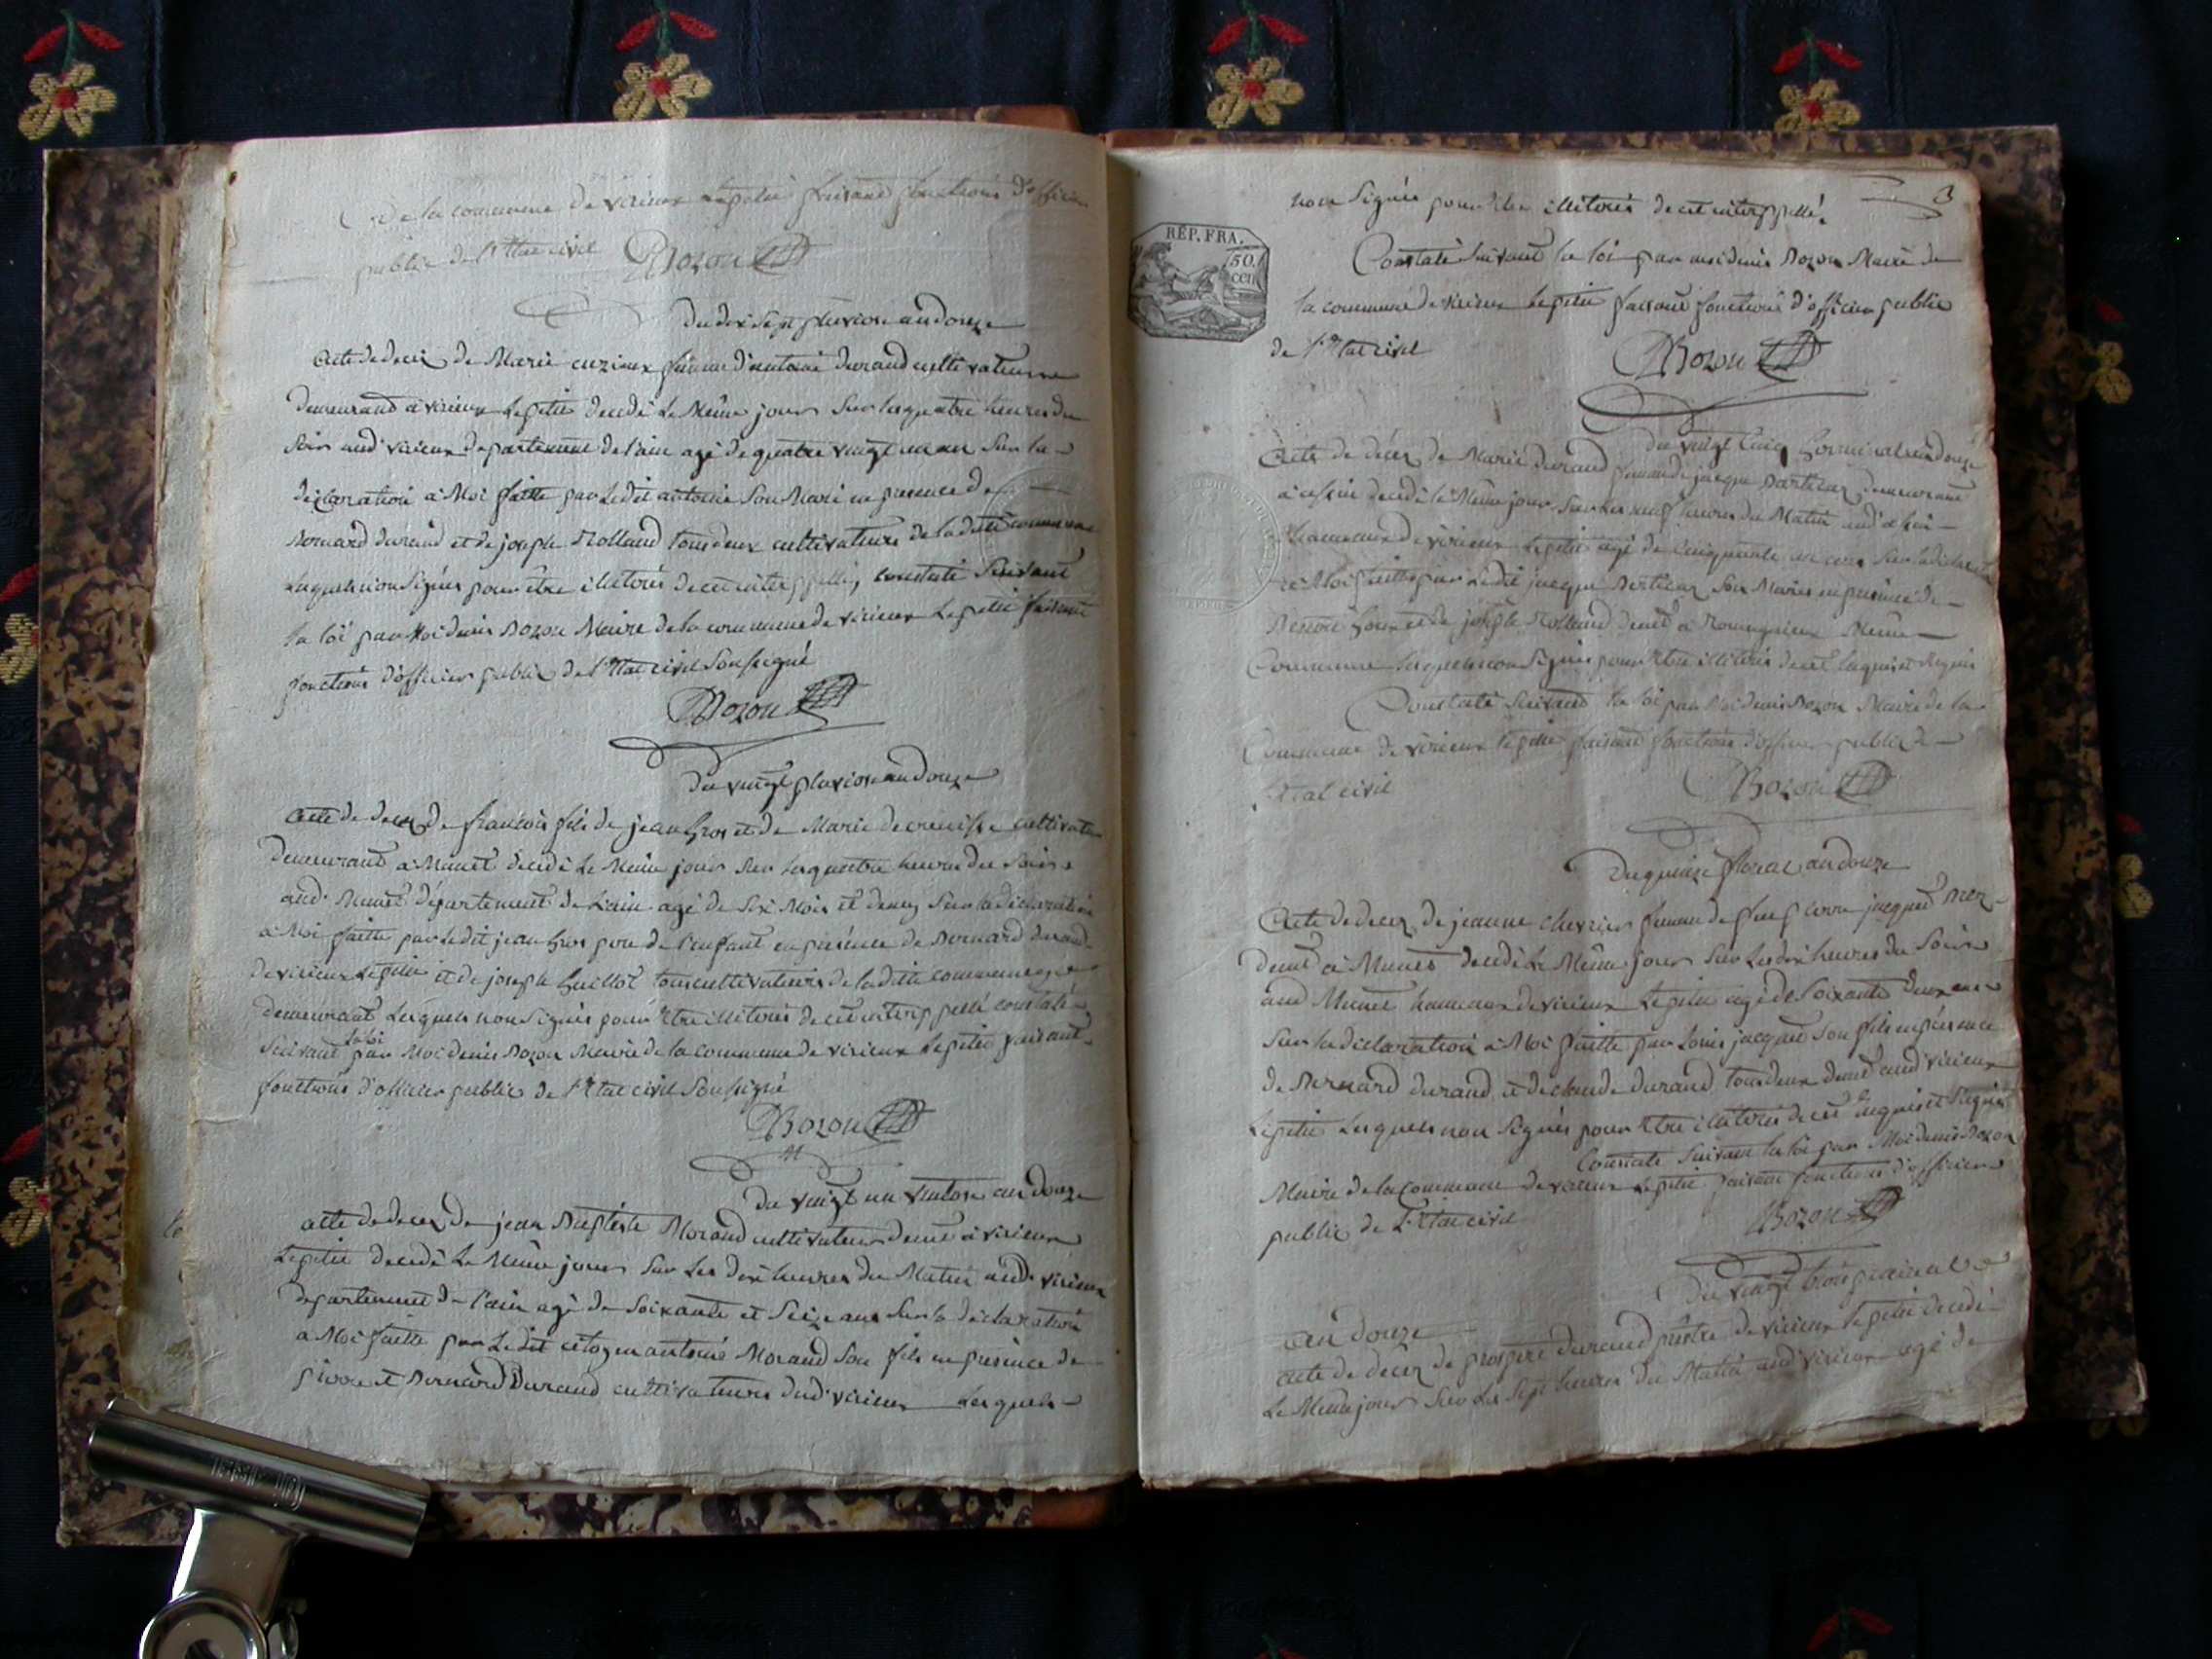 de la commune de virieux Lepetit faisand fonctions d'officier
public de l'Etat civil Bozon
du dix sept pluviose an douze
Acte de decez de Marie cuzieux femme d'antoine durand cultivateur
demeurand a virieux Lepetit decedé Le Même jour Sur les quatre heures du
Soir aud' virieux departement de l'ain agé de quatre vingt un an Sur la
declaration à Moi faitte par Ledit antoine Son Mari en presence de
Bernard durand et de joseph Rolland tous deux cultivateurs de la ditte commune
Lesquels non Signés pour être illiterés de cet interppellé, constaté Suivant
la loi par Moi denis Bozon Maire de la commune de virieux Lepetit faisant
fonctions d'officier public de l'Etat civil Soussigné
Bozon
du vingt pluviose an douze
Acte de decez de francois fils de jean gros et de Marie decroiste cultivateur
demeurant a Munet decedé Le Même jour Sur les quatre heures du Soir
aud. Munet département de L'ain agé de Six Mois et demy Sur la declaration
à Moi faitte par Ledit jean gros pere de l'enfant en présence de Bernard durand
de virieux Lepetit et de joseph guillot tous cultivateurs de la ditte commune y
demeurant Lesquels non Signés pour Etre illiterés de cet interppellé constaté
la loi
Suivant par Moi denis Bozon Maire de la commune de virieux Lepetit faisant
fonctions d'officier public de l'Etat civil Soussigné
Bozon
du vingt un Ventose an douze
acte de decez de jean Baptiste Morand cultivateur demt à virieux
Lepetit decedé Le Même jour Sur Les dix heures du Matin aud. virieux
departement de l'ain agé de Soixante et Seize ans Sur la declaration
à Moi faitte par Ledit citoyen antoine Morand Son fils en présence de
pierre et Bernard Durand cultivateurs dud' virieux Lesquels
3
non Signés pour Etre illiterés de cet interppellé.
RÉP. FRA.
50
cen
Constaté Suivant la loi par moi denis Bozon Maire de
la commune de virieux Lepetit faisant fonctions d'officier public
de l'Etat civil
Bozon
du vingt Cinq Germinal an douze
Acte de décez de Marie durand femme de jacque demeurant
decedé le Même jour Sur Les neuf heures du Matin aud'
hammeaux de virieux Lepetit agé de Cinquante ans Sur la declaration
à Moi faitte par Le dit jacque Son Maris en présence de
et de joseph Rolland demt à Romagnieux Même
Commune Lesquels non Signés pour Etre illiterés de cet Enquis et Requis
Constaté Suivand la loi par Moi denis Bozon Maire de la
Commune de virieux Lepetit faisant fonctions d'officier public de
l'Etat civil
Bozon
Du quinze floreal an douze
Acte de decez de jeanne chevrier femme de feu pierre jacquet
demt à Munet decedé Le Même jour Sur Les dix heures du Soir
aud Munet hammeaux de virieux Lepetit agé de Soixante deux ans
Sur la declaration à Moi faitte par Louis jacquet Son fils en présence
de Bernard durand et de claude durand tous deux demt aud virieux
Lepetit Lesquels non Signés pour Etre illiterés de cet Enquis et Requis
Constaté Suivant la loi par Moi denis Bozon
Maire de la Commune de virieux Lepetit faisant fonctions d'officier
public de L'Etat civil
Bozon
Du vingt trois prairial
an douze
acte de decez de prospere durand prêtre de virieux Lepetit decedé
Le Même jour Sur Les Sept heures du Matin aud virieux agé de